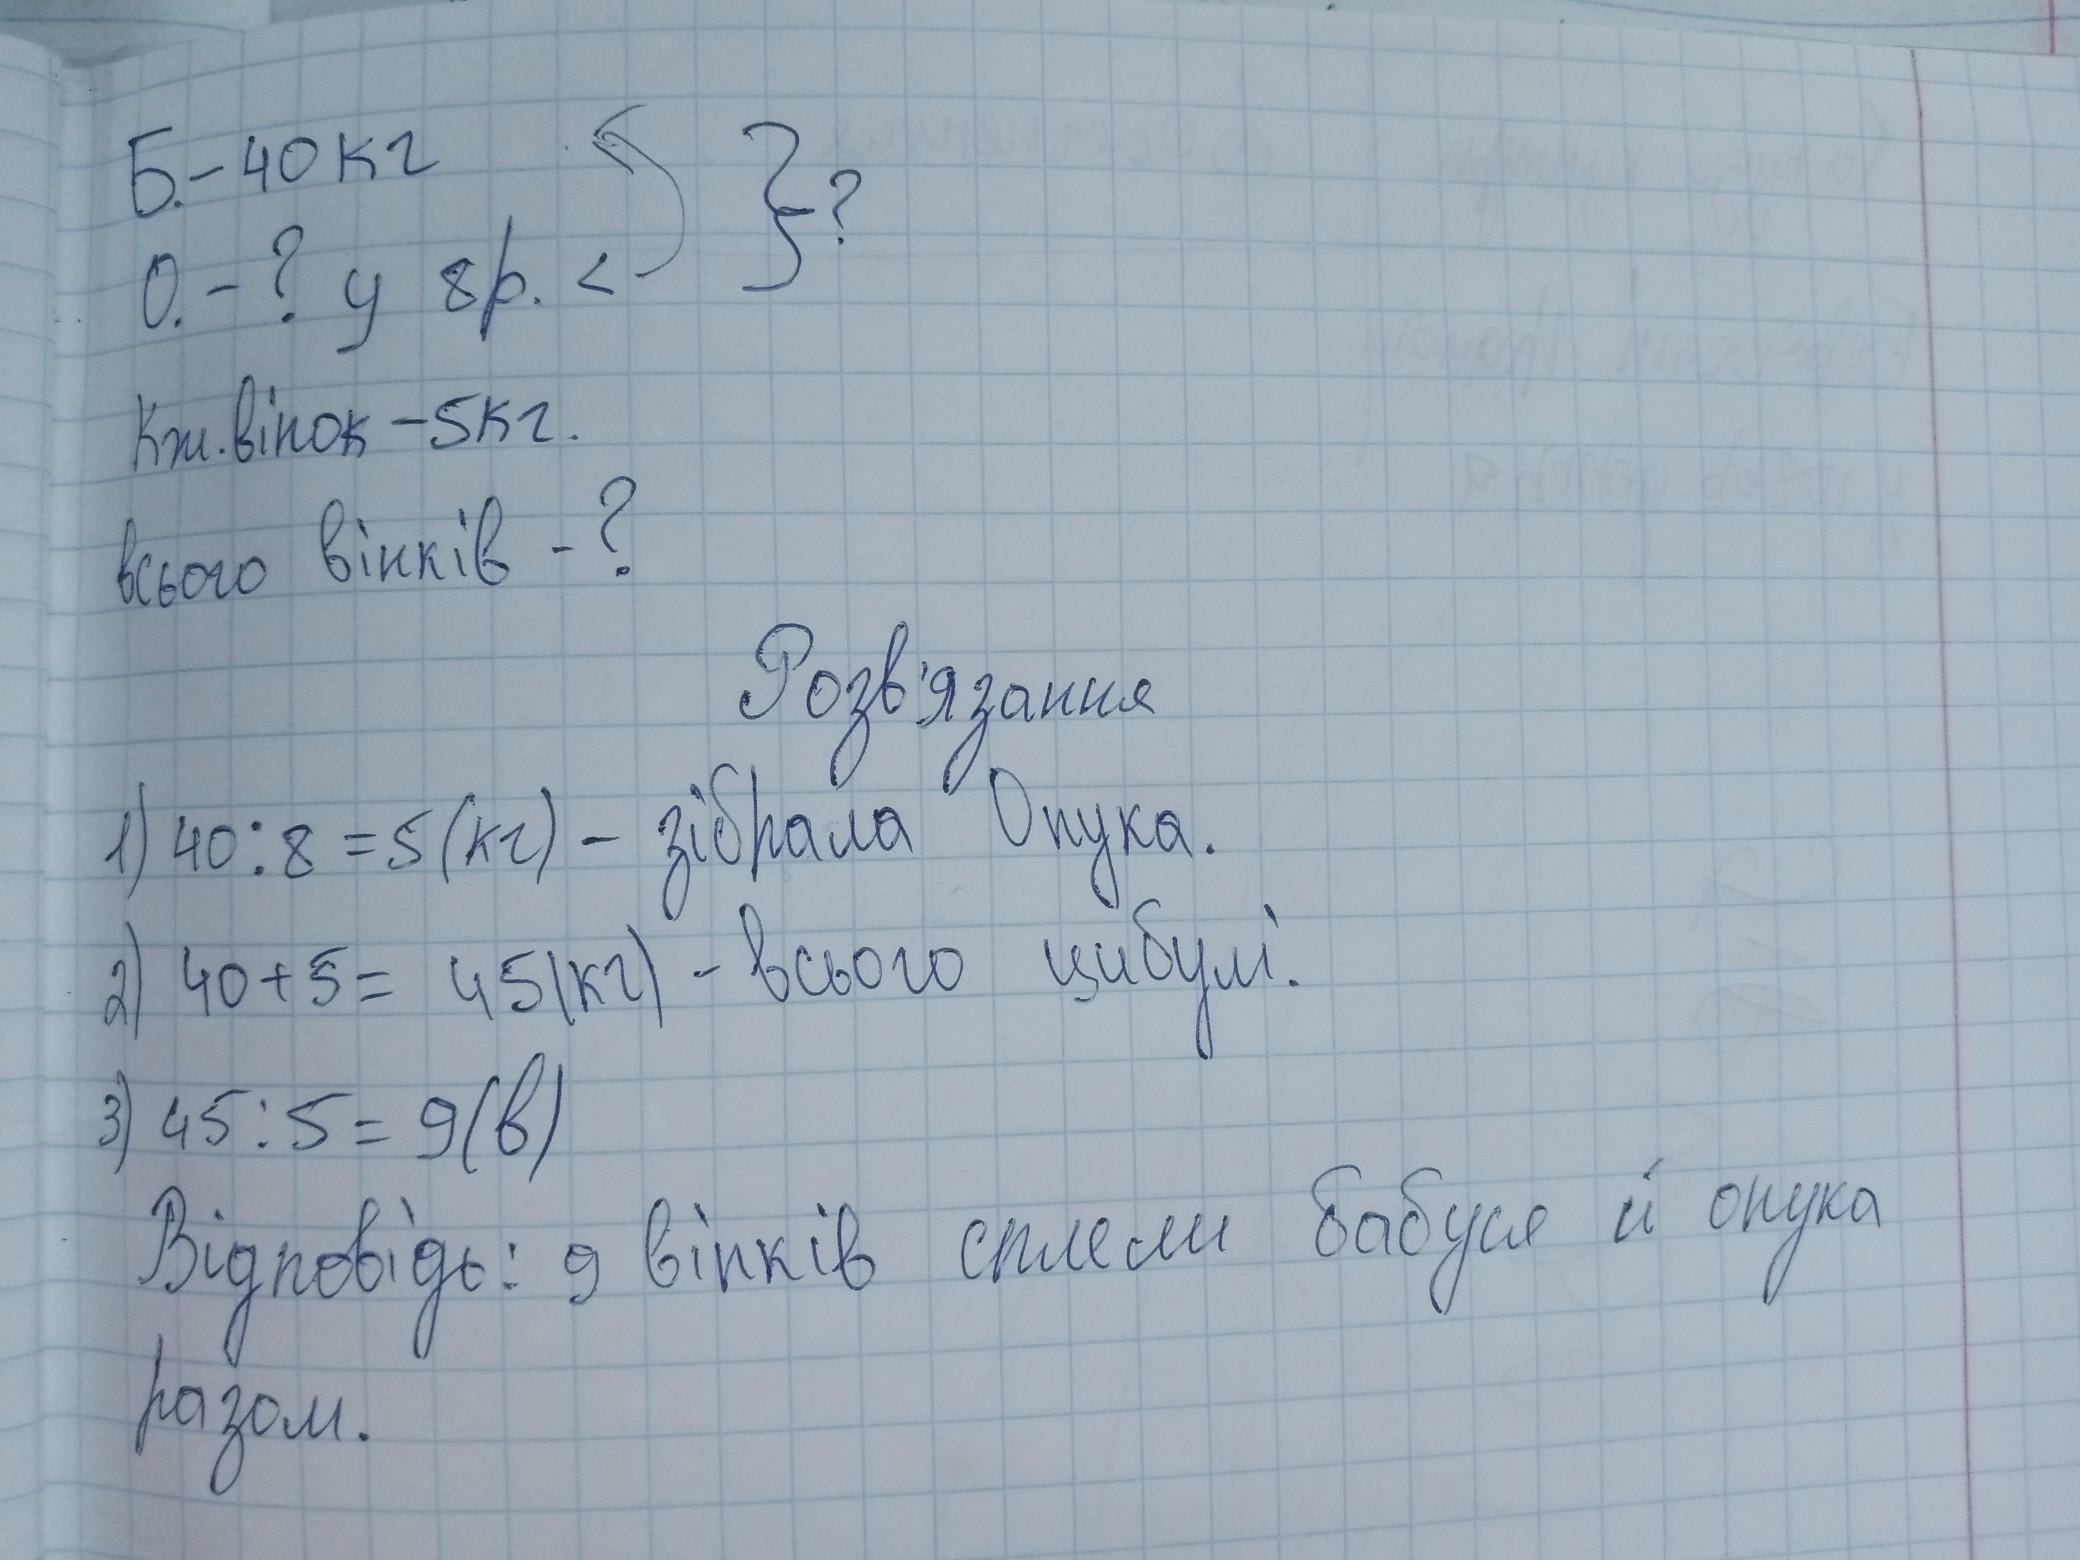 Б. - 40 кг
О. - ? у 8 р. < } ?
Кж. вінок - 5 кг.
всього вінків - ?
Розв'язання
1) 40 : 8 = 5 (кг) - зібрала Онука.
2) 40 + 5 = 45 (кг) - всього цибулі.
3) 45 : 5 = 9 (в)
Відповідь: 9 вінків сплели бабуся й онука
разом.